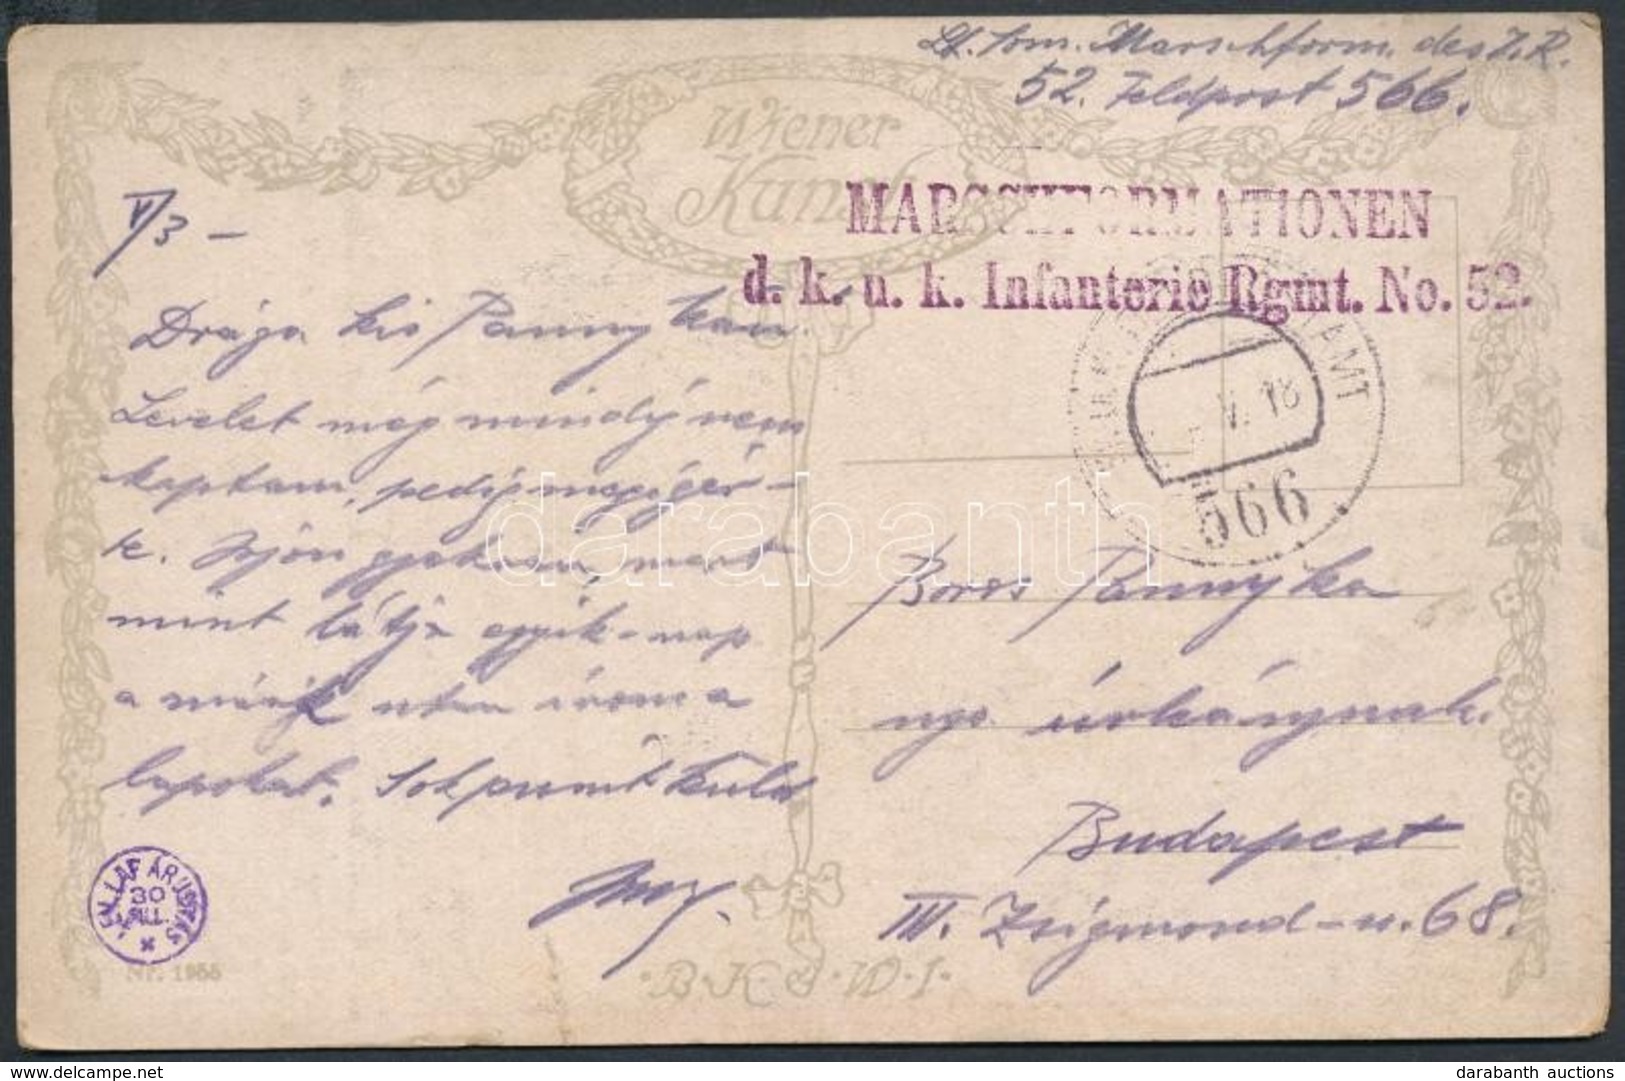 Marschform. des I. R.
52. Feldpost 566.
Wiener
Kunst
MARSCHFORMATIONEN
d. k. u. k. Infanterie Rgmt. No. 52.
V/3 –
V. 18
AMT
566
Drága kis Pannykám.
Levelet még mindíg nem
kaptam, pedig megigér-
te. Irjon gyakran, mert
mint látja egyik-nap
a másik után írom a
lapokat. Sok puszit küld
Boros Pannyka
úrleánynak.
Budapest
III. Zsigmond-u. 68.
ÁRUSÍTÁS
30
FILL.
Nr. 1955
B.K.W.I.
darabanth
darabanth auctions